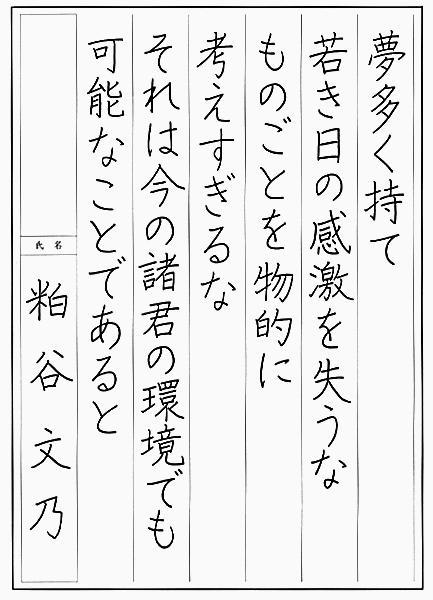 夢多く持て
若き日の感激を失うな
ものごとを物的に
考えすぎるな
それは今の諸君の環境でも
可能なことであると
氏名
粕谷文乃